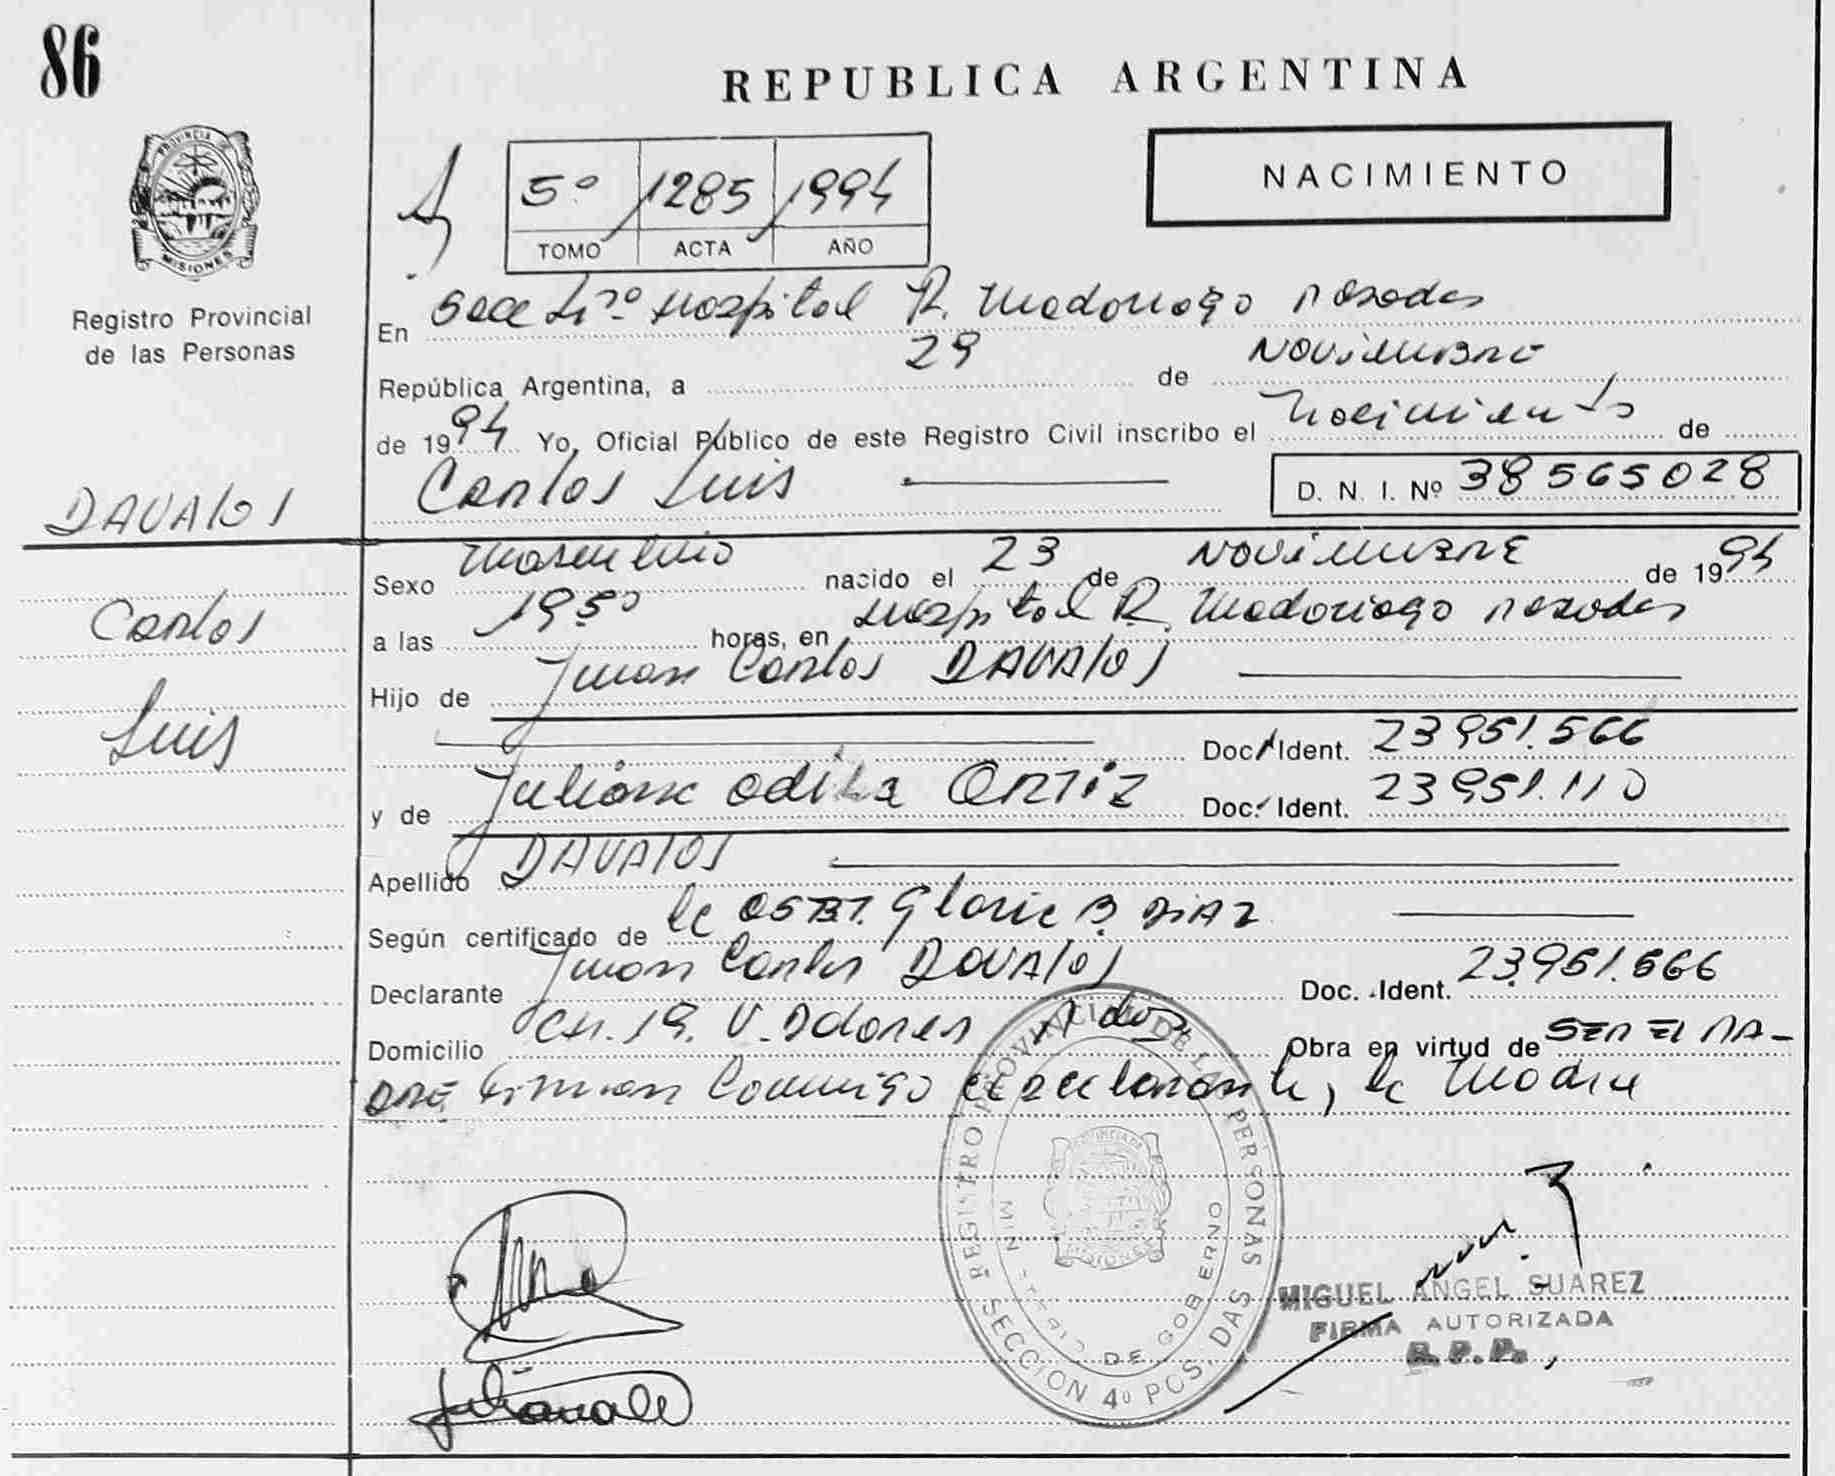 86
REPUBLICA ARGENTINA
PROVINCIA DE MISIONES
NACIMIENTO
5º 1285 1994
TOMO ACTA AÑO
Registro Provincial
de las Personas
En Secc Hospital R. Madariaga Posadas
República Argentina, a 29 de Noviembre
de 1994 Yo, Oficial Público de este Registro Civil inscribo el Nacimiento de
Carlos Luis D. N. I. Nº 38565028
DAVALOS
Carlos
Luis
Sexo Masculino nacido el 23 de NOViEMBRE de 1994
a las 19.50 horas, en Hospital R. Madariaga Posadas
Hijo de Juan Carlos DAVALOS
Doc. Ident. 23951.566
y de Juliana Odila ORTiZ Doc. Ident. 23951.110
Apellido DAVALOS
Según certificado de la OBST. Gloria B. DiAZ
Declarante Juan Carlos DAVALOS Doc. Ident. 23.951.566
Domicilio CH. 19. V. Dolores Obra en virtud de SER EL PA-
DRE Firman Conmigo el declarante, la Madre
REGISTRO PROVINCIAL DE LAS PERSONAS
MINISTERIO DE GOBIERNO
PROVINCIA DE MISIONES
SECCION 4º POSADAS
MIGUEL ANGEL SUAREZ
FIRMA AUTORIZADA
R. P. P.